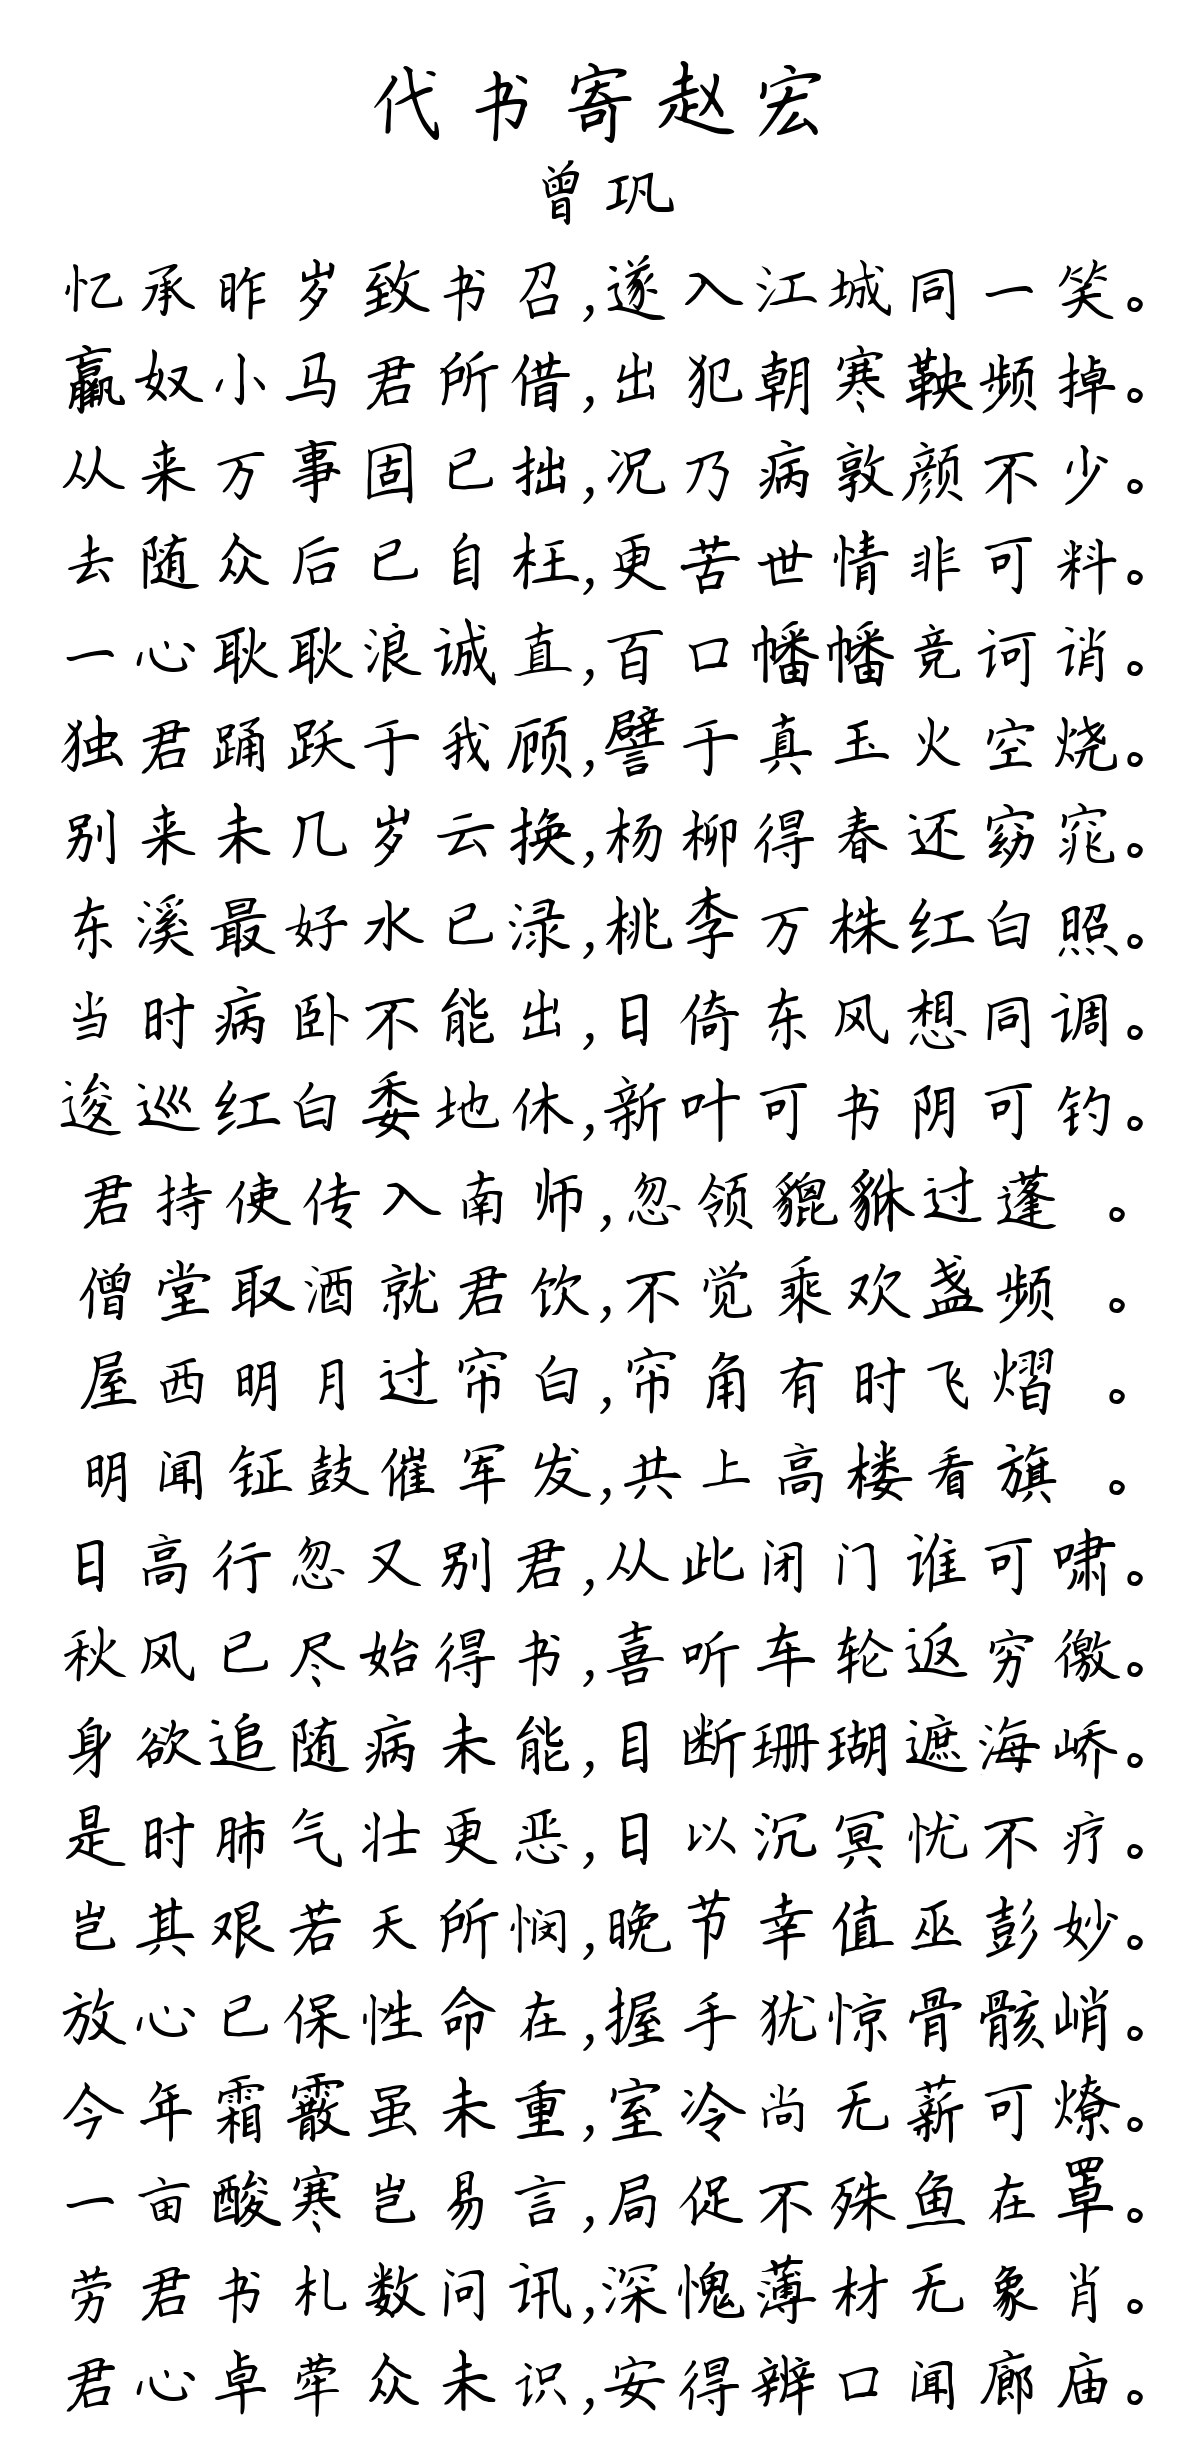 代书寄赵宏
曾巩
忆承昨岁致书召,遂入江城同一笑。
羸奴小马君所借,出犯朝寒鞅频掉。
从来万事固已拙,况乃病敦颜不少。
去随众后已自枉,更苦世情非可料。
一心耿耿浪诚直,百口幡幡竞诃诮。
独君踊跃于我顾,譬于真玉火空烧。
别来未几岁云换,杨柳得春还窈窕。
东溪最好水已渌,桃李万株红白照。
当时病卧不能出,日倚东风想同调。
逡巡红白委地休,新叶可书阴可钓。
君持使传入南师,忽领貔貅过蓬 。
僧堂取酒就君饮,不觉乘欢盏频 。
屋西明月过帘白,帘角有时飞熠 。
明闻钲鼓催军发,共上高楼看旗 。
日高行忽又别君,从此闭门谁可啸。
秋风已尽始得书,喜听车轮返穷徼。
身欲追随病未能,目断珊瑚遮海峤。
是时肺气壮更恶,日以沉冥忧不疗。
岂其艰若天所悯,晚节幸值巫彭妙。
放心已保性命在,握手犹惊骨骸峭。
今年霜霰虽未重,室冷尚无薪可燎。
一亩酸寒岂易言,局促不殊鱼在罩。
劳君书札数问讯,深愧薄材无象肖。
君心卓荦众未识,安得辨口闻廊庙。